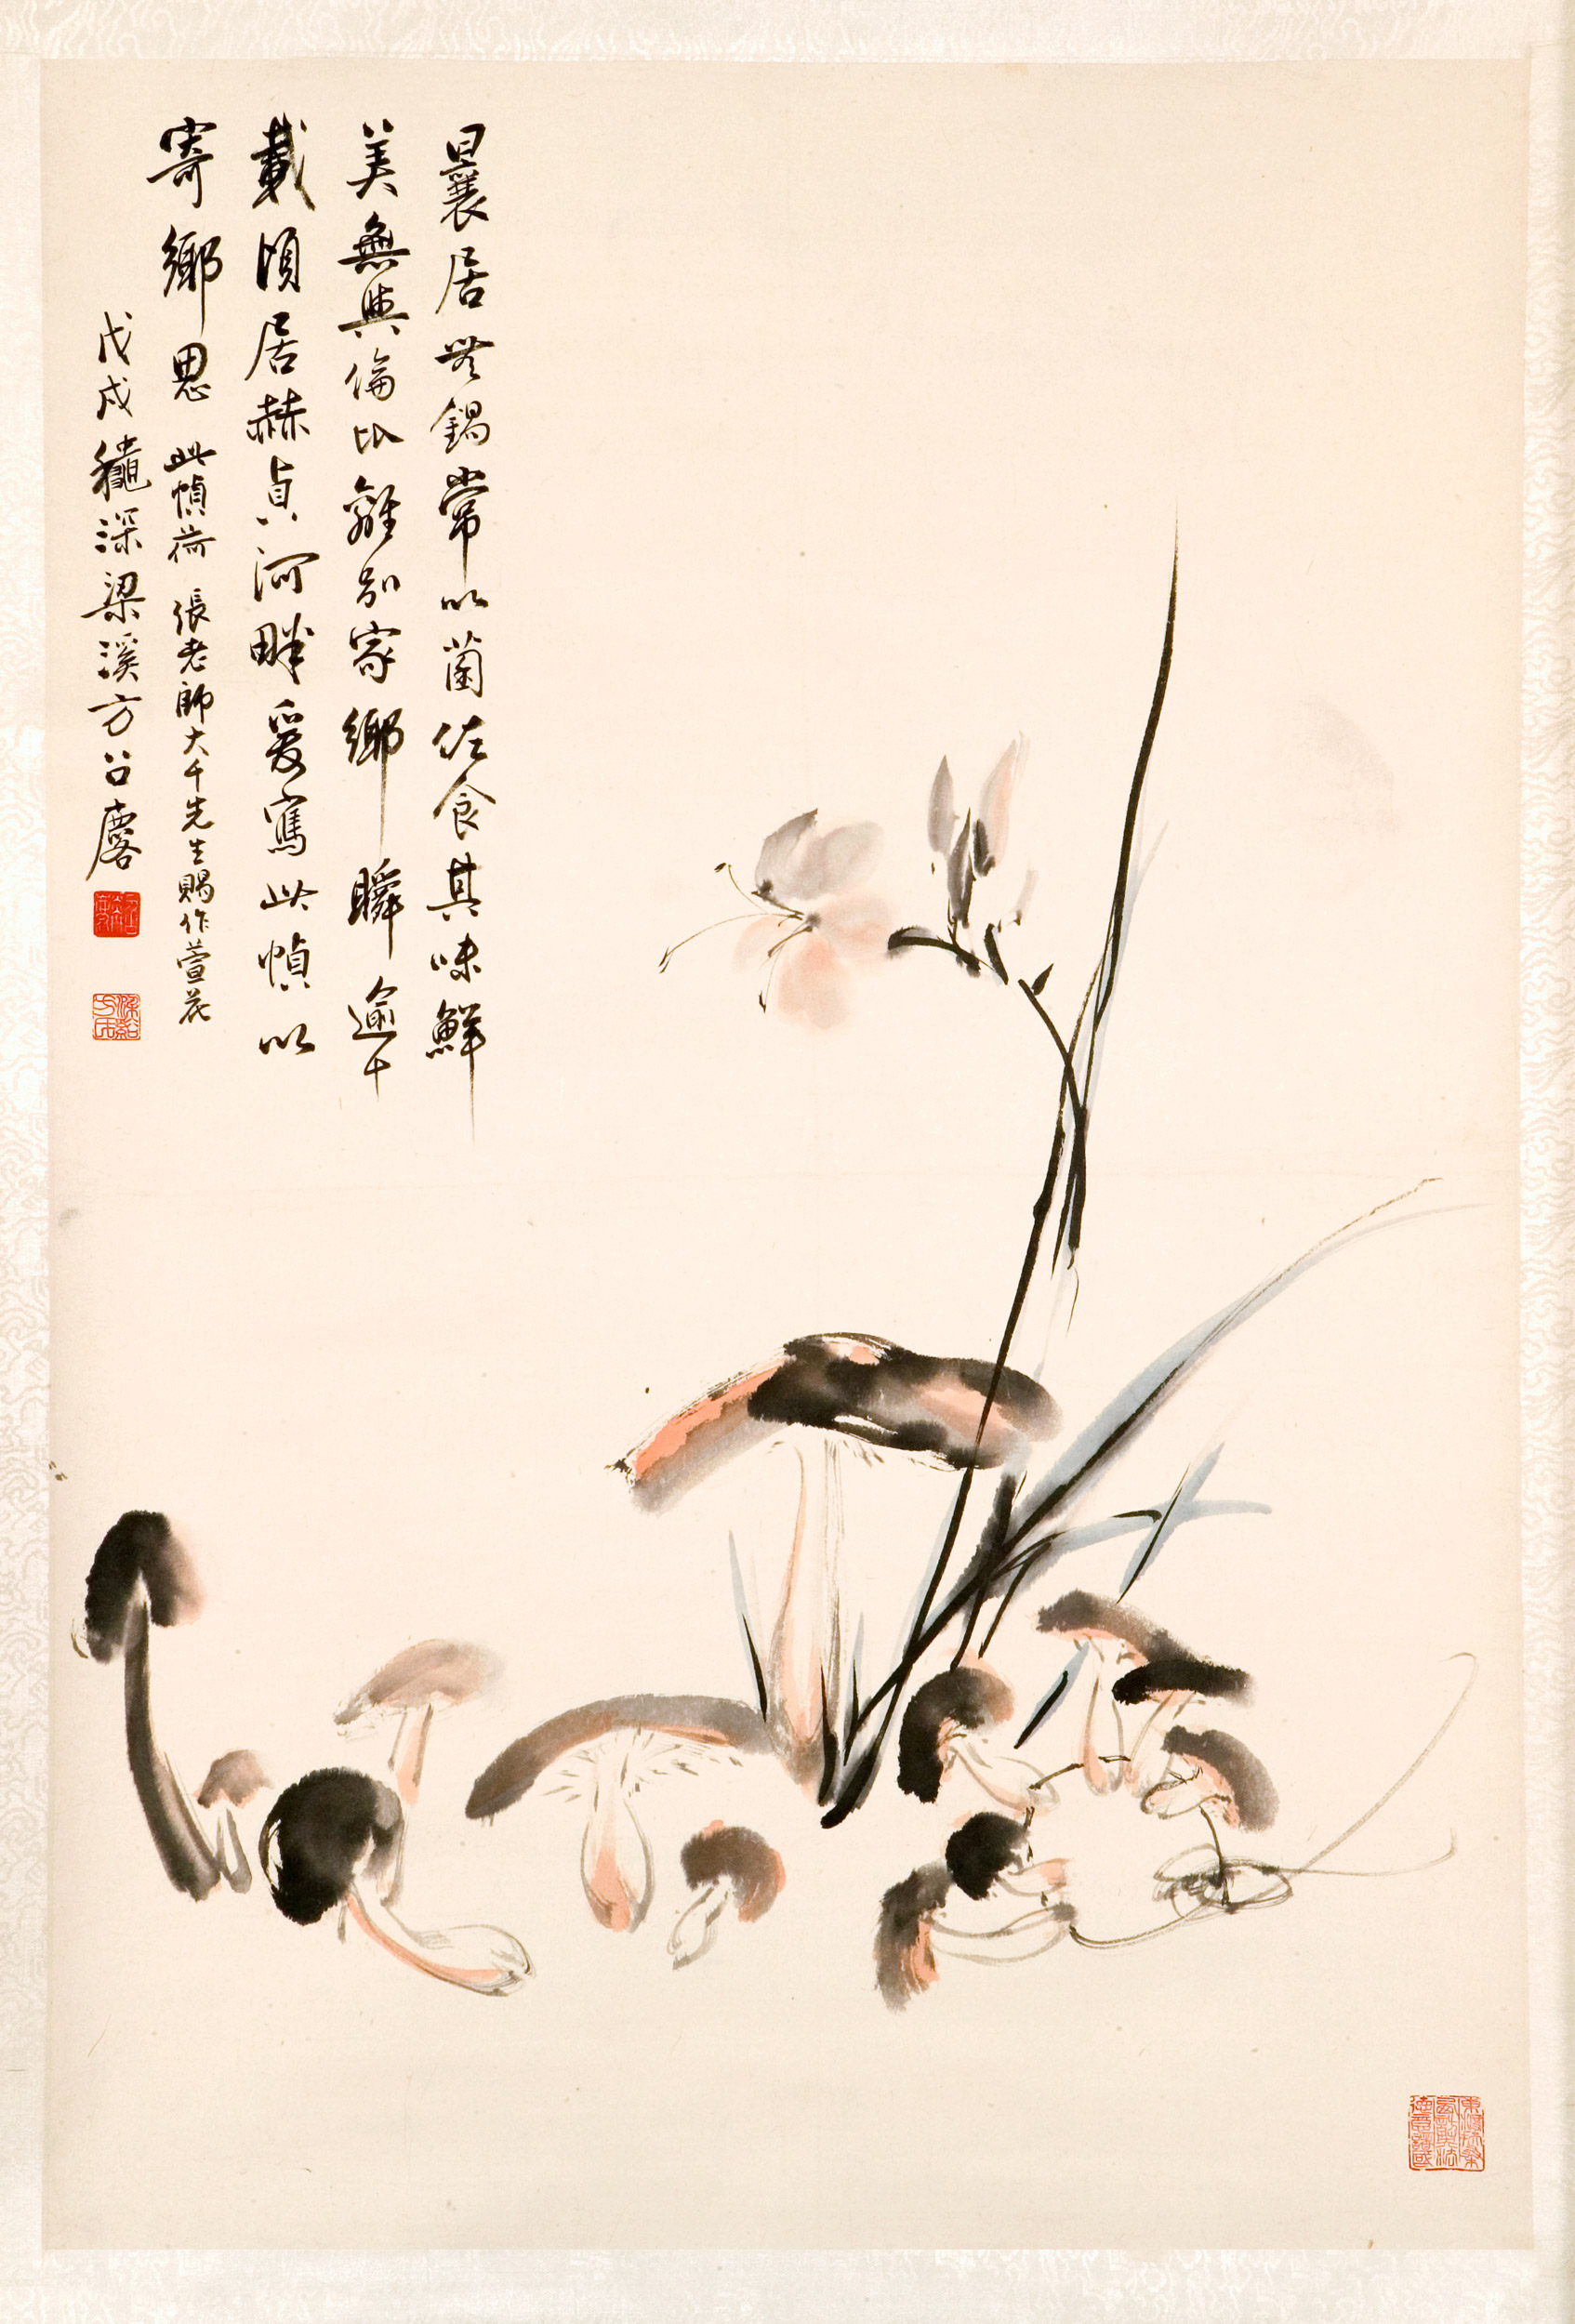 曩居無錫常以菌佐食其味鮮
美無與倫比離別家鄉一瞬逾十
載頃居赫貞河畔爰寫此幀以
寄鄉思 此幀荷 張老師大千先生賜作萱花
戊戌龝深梁溪方召麐